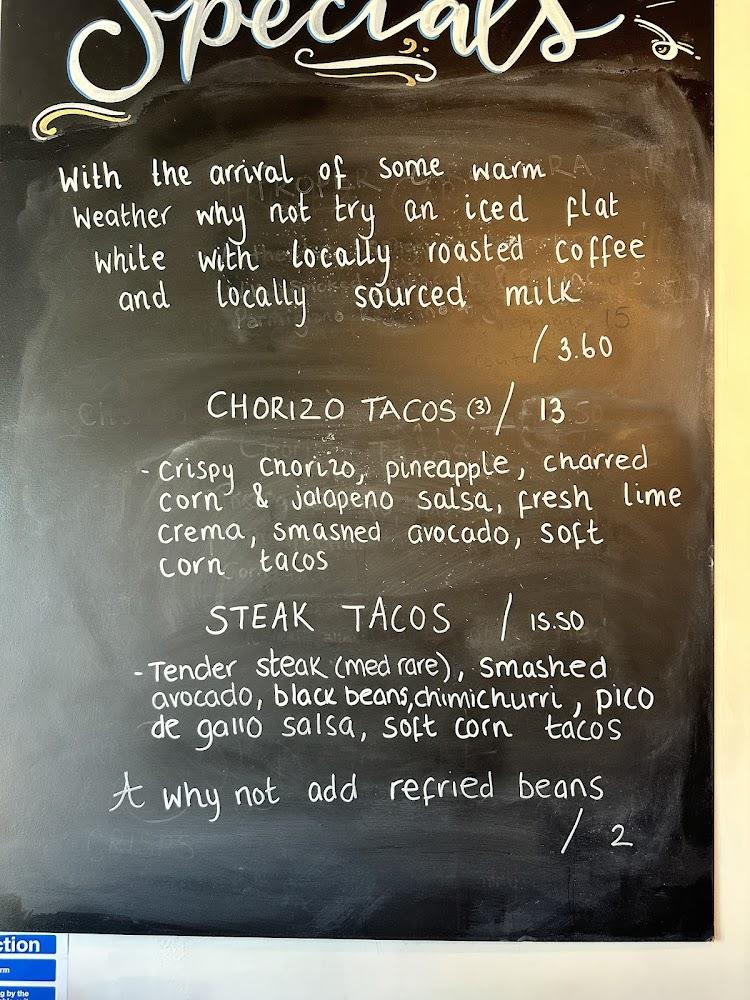 Specials
With the arrival of some warm
Weather why not try an iced flat
white with locally roasted coffee
and locally sourced milk
/ 3.60
CHORIZO TACOS (3) / 13
- Crispy Chorizo, pineapple, charred
corn & jalapeno salsa, fresh lime
crema, smashed avocado, soft
corn tacos
STEAK TACOS / 15.50
- Tender steak (med rare), smashed
avocado, black beans, chimichurri, pico
de gallo salsa, soft corn tacos
☆ why not add refried beans
/ 2
ction
rm
g by the